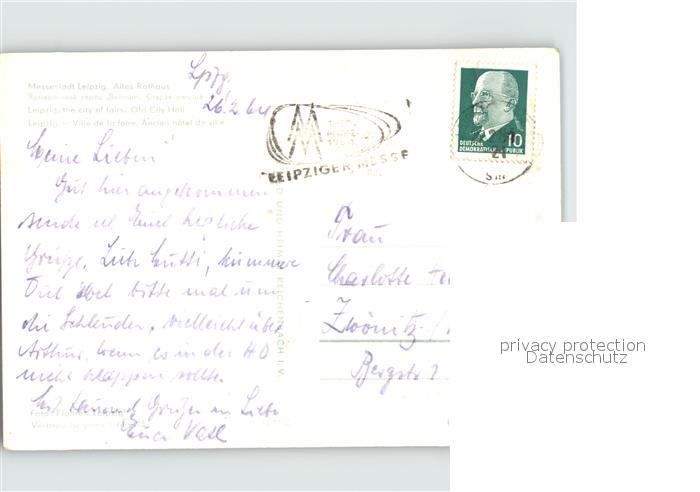 Messestadt Leipzig, Altes Rathaus
Leipzig, the city of fairs, Old City Hall
Leipzig — Ville de la foire, Ancien hôtel de ville
Lpzg.
26.2.64
Meine Lieben!
Gut hier angekommen
sende ich Euch herzliche
Grüße. Liebe Mutti, kümmere
Dich doch bitte mal um
die Schleuder, vielleicht über
Arthur, wenn es in der HO
nicht klappen sollte.
Grüßen in Liebe
Euer Vati
LEIPZIGER MESSE
DEUTSCHE
DEMOKRATISCHE REPUBLIK
10
21
Frau
Charlotte
Zwönitz /
Bergstr
REICHENBACH I. V.
privacy protection
Datenschutz